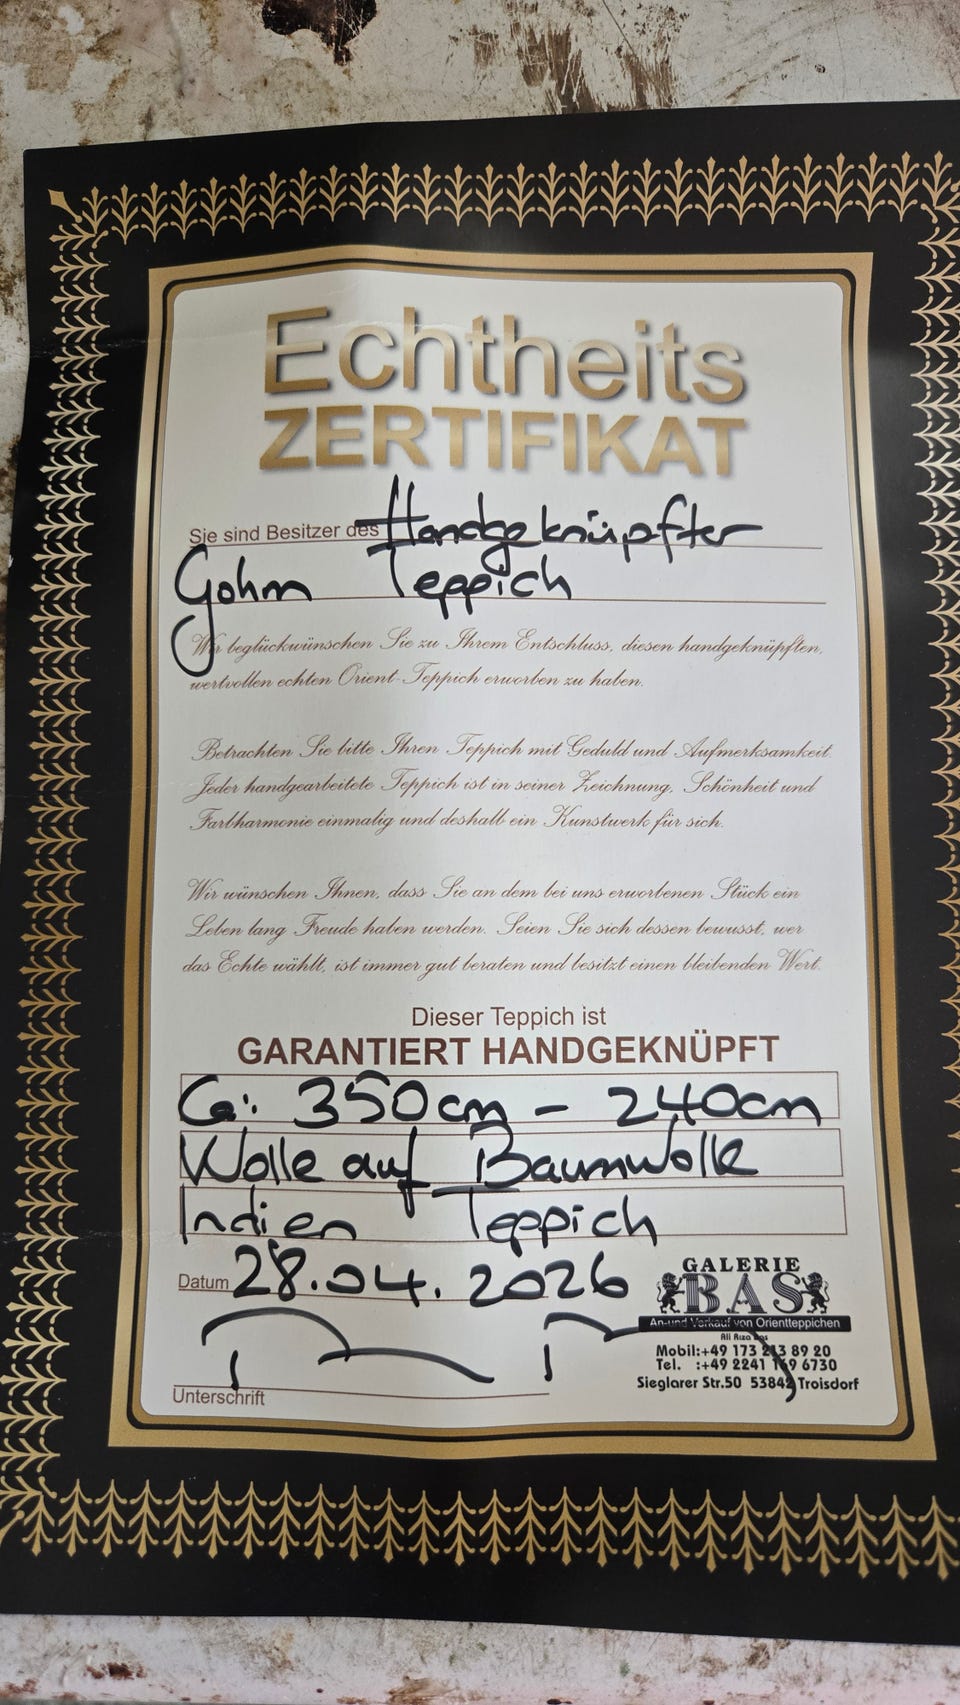 Echtheits
ZERTIFIKAT
Sie sind Besitzer des Handgeknüpfter
Gohm Teppich
Wir beglückwünschen Sie zu Ihrem Entschluss, diesen handgeknüpften,
wertvollen echten Orient-Teppich erworben zu haben.
Betrachten Sie bitte Ihren Teppich mit Geduld und Aufmerksamkeit.
Jeder handgearbeitete Teppich ist in seiner Zeichnung, Schönheit und
Farbharmonie einmalig und deshalb ein Kunstwerk für sich.
Wir wünschen Ihnen, dass Sie an dem bei uns erworbenen Stück ein
Leben lang Freude haben werden. Seien Sie sich dessen bewusst, wer
das Echte wählt, ist immer gut beraten und besitzt einen bleibenden Wert.
Dieser Teppich ist
GARANTIERT HANDGEKNÜPFT
Ca: 350cm - 240cm
Wolle auf Baumwolle
Indien Teppich
Datum 28.04.2026
GALERIE
BAS
An-und Verkauf von Orientteppichen
Ali Riza Bas
Mobil:+49 173 213 89 20
Tel. :+49 2241 169 6730
Sieglarer Str.50 53842 Troisdorf
Unterschrift